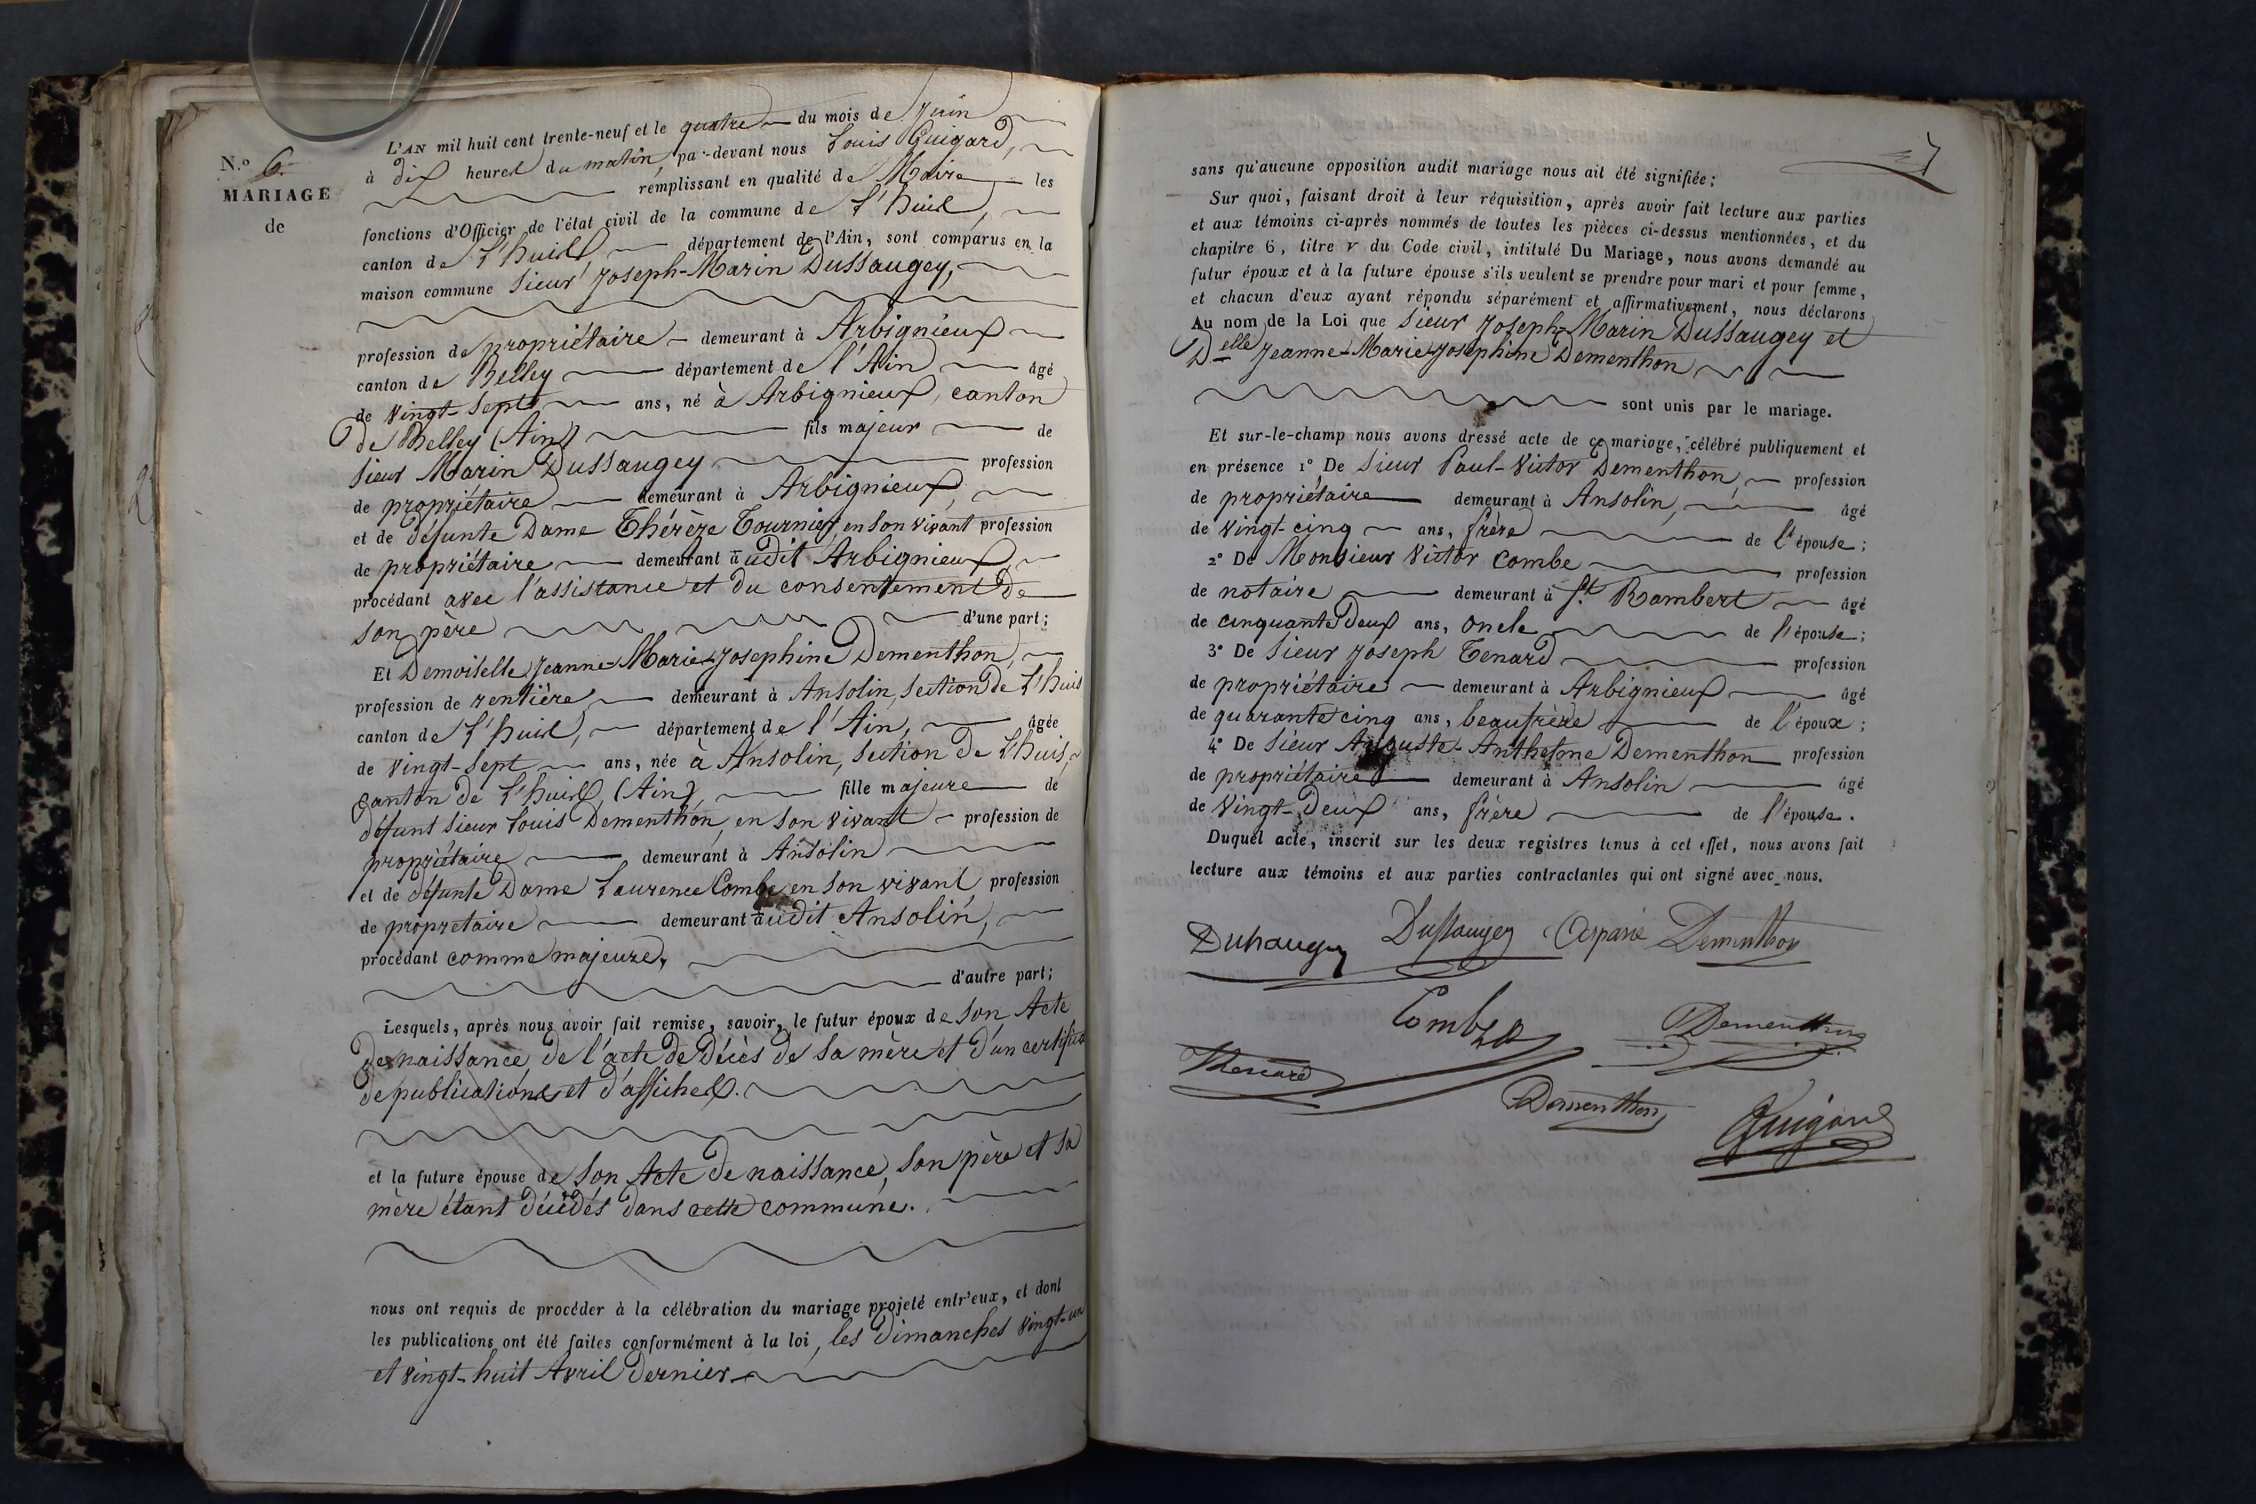 N.o 6.
MARIAGE
de
L'AN mil huit cent trente-neuf et le quatre du mois de Juin
à dix heures du matin, par-devant nous Louis Guigard,
remplissant en qualité de Maire les
fonctions d'Officier de l'état civil de la commune de L'huis,
canton de L'huis, département de l'Ain, sont comparus en la
maison commune Sieur Joseph-Marin Dussaugey,
profession de propriétaire demeurant à Arbignieux
canton de Belley département de l'Ain âgé
de vingt-sept ans, né à Arbignieux, canton
de Belley (Ain) fils majeur de
Sieur Marin Dussaugey profession
de propriétaire demeurant à Arbignieux,
et de défunte Dame Thérèze Tournier, en son vivant profession
de propriétaire demeurant audit Arbignieux,
procédant avec l'assistance et du consentement de
son père d'une part;
Et Demoiselle Jeanne-Marie-Josephine Dementhon,
profession de rentière demeurant à Ansolin, section de L'huis
canton de L'huis, département de l'Ain, âgée
de vingt-sept ans, née à Ansolin, section de L'huis,
canton de L'huis, (Ain), fille majeure de
défunt sieur Louis Dementhon, en son vivant profession de
propriétaire demeurant à Ansolin
et de défunte Dame Laurence Combe, en son vivant profession
de propretaire demeurant audit Ansolin,
procédant comme majeure,
d'autre part;
Lesquels, après nous avoir fait remise, savoir, le futur époux de son Acte
de naissance, de l'acte de décès de sa mère et d'un certificat
de publications et d'affiches.
et la future épouse de son Acte de naissance, son père et sa
mère étant décédés dans cette commune.
nous ont requis de procéder à la célébration du mariage projeté entr'eux, et dont
les publications ont été faites conformément à la loi, les dimanches vingt-un
et vingt-huit Avril dernier
7
sans qu'aucune opposition audit mariage nous ait été signifiée;
Sur quoi, faisant droit à leur réquisition, après avoir fait lecture aux parties
et aux témoins ci-après nommés de toutes les pièces ci-dessus mentionnées, et du
chapitre 6, titre v du Code civil, intitulé Du Mariage, nous avons demandé au
futur époux et à la future épouse s'ils veulent se prendre pour mari et pour femme,
et chacun d'eux ayant répondu séparément et affirmativement, nous déclarons
Au nom de la Loi que Sieur Joseph-Marin Dussaugey et
Delle Jeanne-Marie-Josephine Dementhon
sont unis par le mariage.
Et sur-le-champ nous avons dressé acte de ce mariage, célébré publiquement et
en présence 1° De Sieur Paul-Victor Dementhon, profession
de propriétaire demeurant à Ansolin, âgé
de vingt-cinq ans, frère de l'épouse;
2° De Monsieur Victor Combe profession
de notaire demeurant à St. Rambert âgé
de cinquante deux ans, oncle de l'épouse;
3° De Sieur Joseph Tenard profession
de propriétaire demeurant à Arbignieux âgé
de quarante cinq ans, beaufrère de l'époux;
4° De Sieur Auguste-Anthelme Dementhon profession
de propriétaire demeurant à Ansolin âgé
de vingt-deux ans, frère de l'épouse.
Duquel acte, inscrit sur les deux registres tenus à cet effet, nous avons fait
lecture aux témoins et aux parties contractantes qui ont signé avec nous.
Dussaugey Aspasie Dementhon
Combe Dementhon
Thenard
Dementhon
Guigard